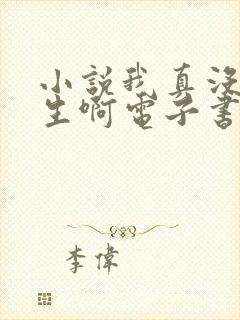 小說我真沒
生啊電子書
李偉